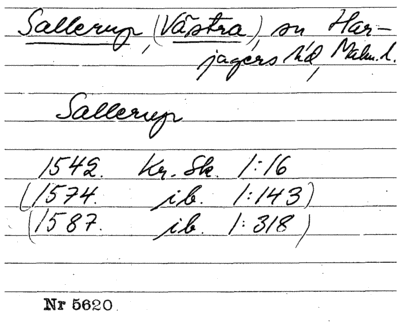 Sallerup, (Västra), sn Har-
jagers hd, Malm.l.
Sallerup
1542. Kr. Sk. 1:16
(1574. ib. 1:143)
(1587. ib. 1:318)
Nr 5620